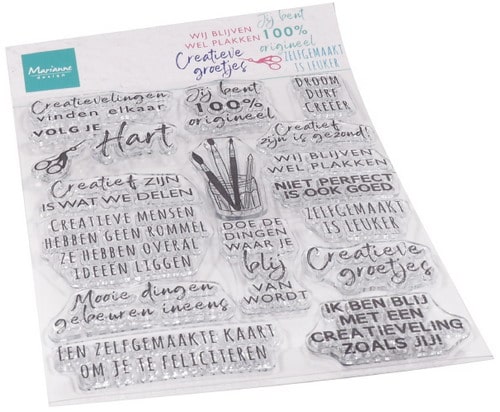 Marianne
design
WIJ BLIJVEN
WEL PLAKKEN
Creatieve
groetjes
Jij bent
100%
origineel
ZELFGEMAAKT
IS LEUKER
Creatievelingen
vinden elkaar
VOLG JE
Hart
Jij bent
100%
origineel
DROOM
DURF
CREËER
Creatief
zijn is gezond!
WIJ BLIJVEN
WEL PLAKKEN
NIET PERFECT
IS OOK GOED
ZELFGEMAAKT
IS LEUKER
Creatief ZIJN
IS WAT WE DELEN
CREATIEVE MENSEN
HEBBEN GEEN ROMMEL
ZE HEBBEN OVERAL
IDEEËN LIGGEN
DOE DE
DINGEN
WAAR JE
blij
VAN
WORDT
Creatieve
groetjes
Mooie dingen
gebeuren ineens
EEN ZELFGEMAAKTE KAART
OM JE TE FELICITEREN
IK BEN BLIJ
MET EEN
CREATIEVELING
ZOALS JIJ!